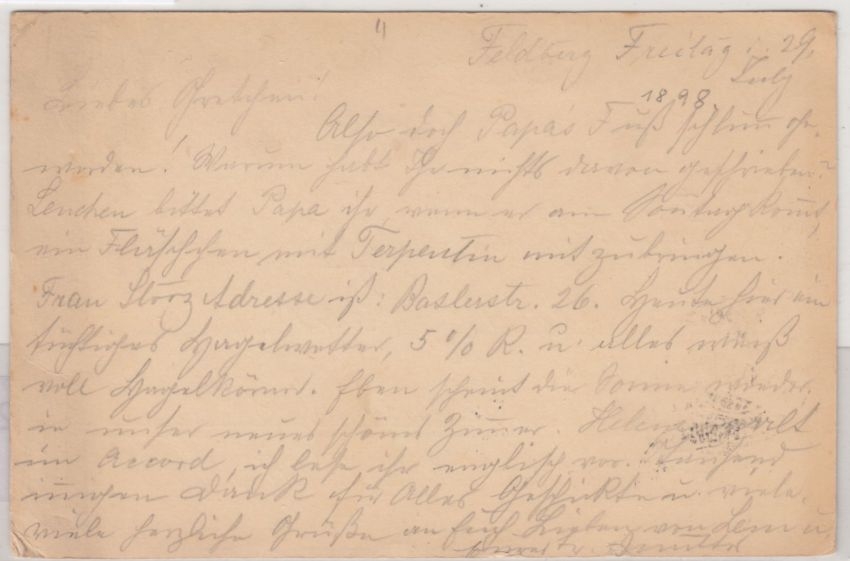 Feldberg Freitag 29.
July
1898
Liebes Gretchen!
Also doch Papas Fuß schlim ge-
worden! Warum habt Ihr nichts davon geschrieben?
Lenchen bittet Papa ihr, wenn er am Sontag komt,
ein Fläschchen mit Terpentin mitzubringen.
Frau Storz Adresse ist: Baslerstr. 26. Heute hier ein
tüchtiges Hagelwetter, 5° R. u. alles weiß
voll Hagelkörner. Eben scheint die Sonne wieder
in unser neues schönes Zimer. Helene
im Accord, ich lese ihr englisch vor. Tausend
innigen Dank für Alles Geschickte u. viele,
viele herzliche Grüße an Euch Lieben von Len u.
Eurer tr. Mutter